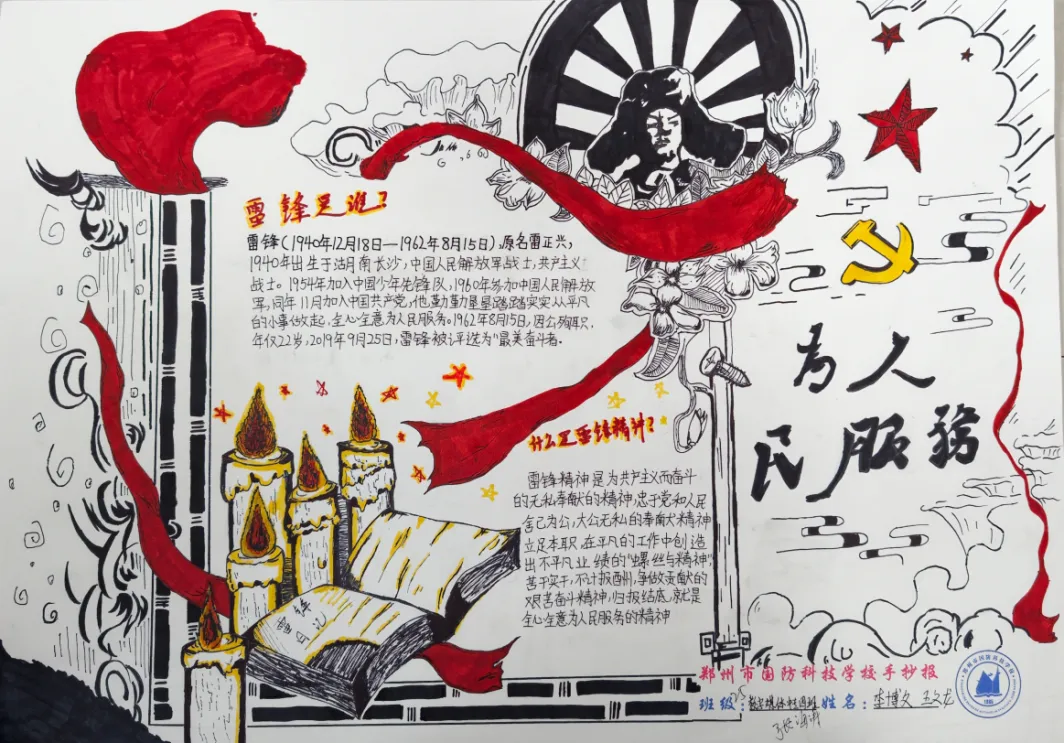 雷锋是谁?
雷锋(1940年12月18日—1962年8月15日),原名雷正兴,
1940年出生于湖南长沙,中国人民解放军战士,共产主义
战士。1954年加入中国少年先锋队,1960年参加中国人民解放
军,同年11月加入中国共产党,他勤勤恳恳踏踏实实从平凡
的小事做起,全心全意为人民服务。1962年8月15日,因公殉职,
年仅22岁,2019年9月25日,雷锋被评选为"最美奋斗者。
为人
民服务
什么是雷锋精神?
雷锋精神是为共产主义而奋斗
的无私奉献的精神,忠于党和人民
舍己为公,大公无私的奉献精神
立足本职、在平凡的工作中创造
出不平凡业绩的"螺丝钉精神",
苦干实干,不计报酬,争做贡献的
艰苦奋斗精神,归根结底,就是
全心全意为人民服务的精神
雷锋
日记
郑州市国防科技学校手抄报
班级: 姓名:李博文 王文龙